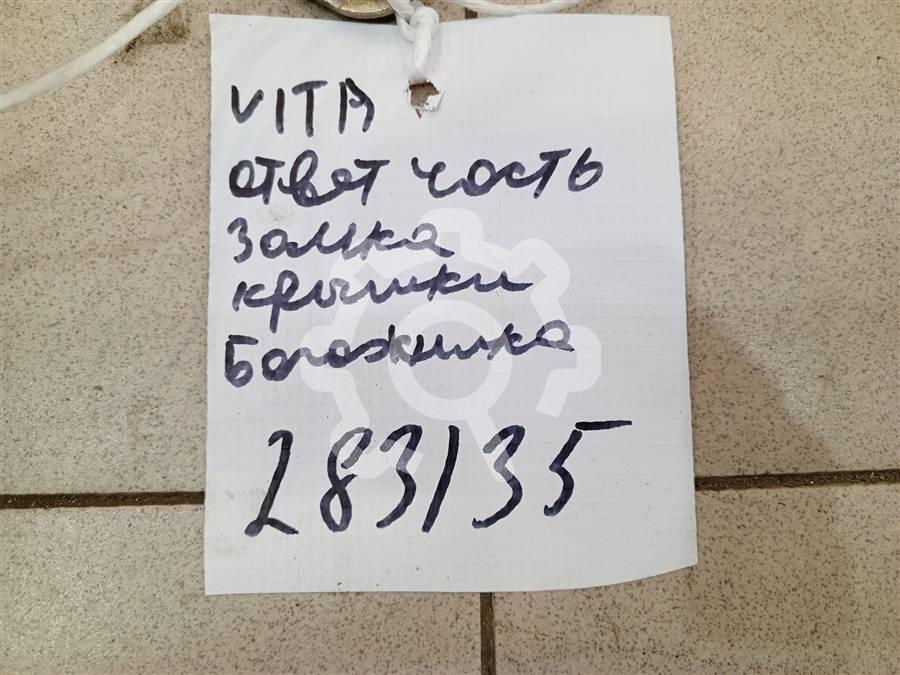 VITA
ответ часть
замка
крышки
Багажника
283135